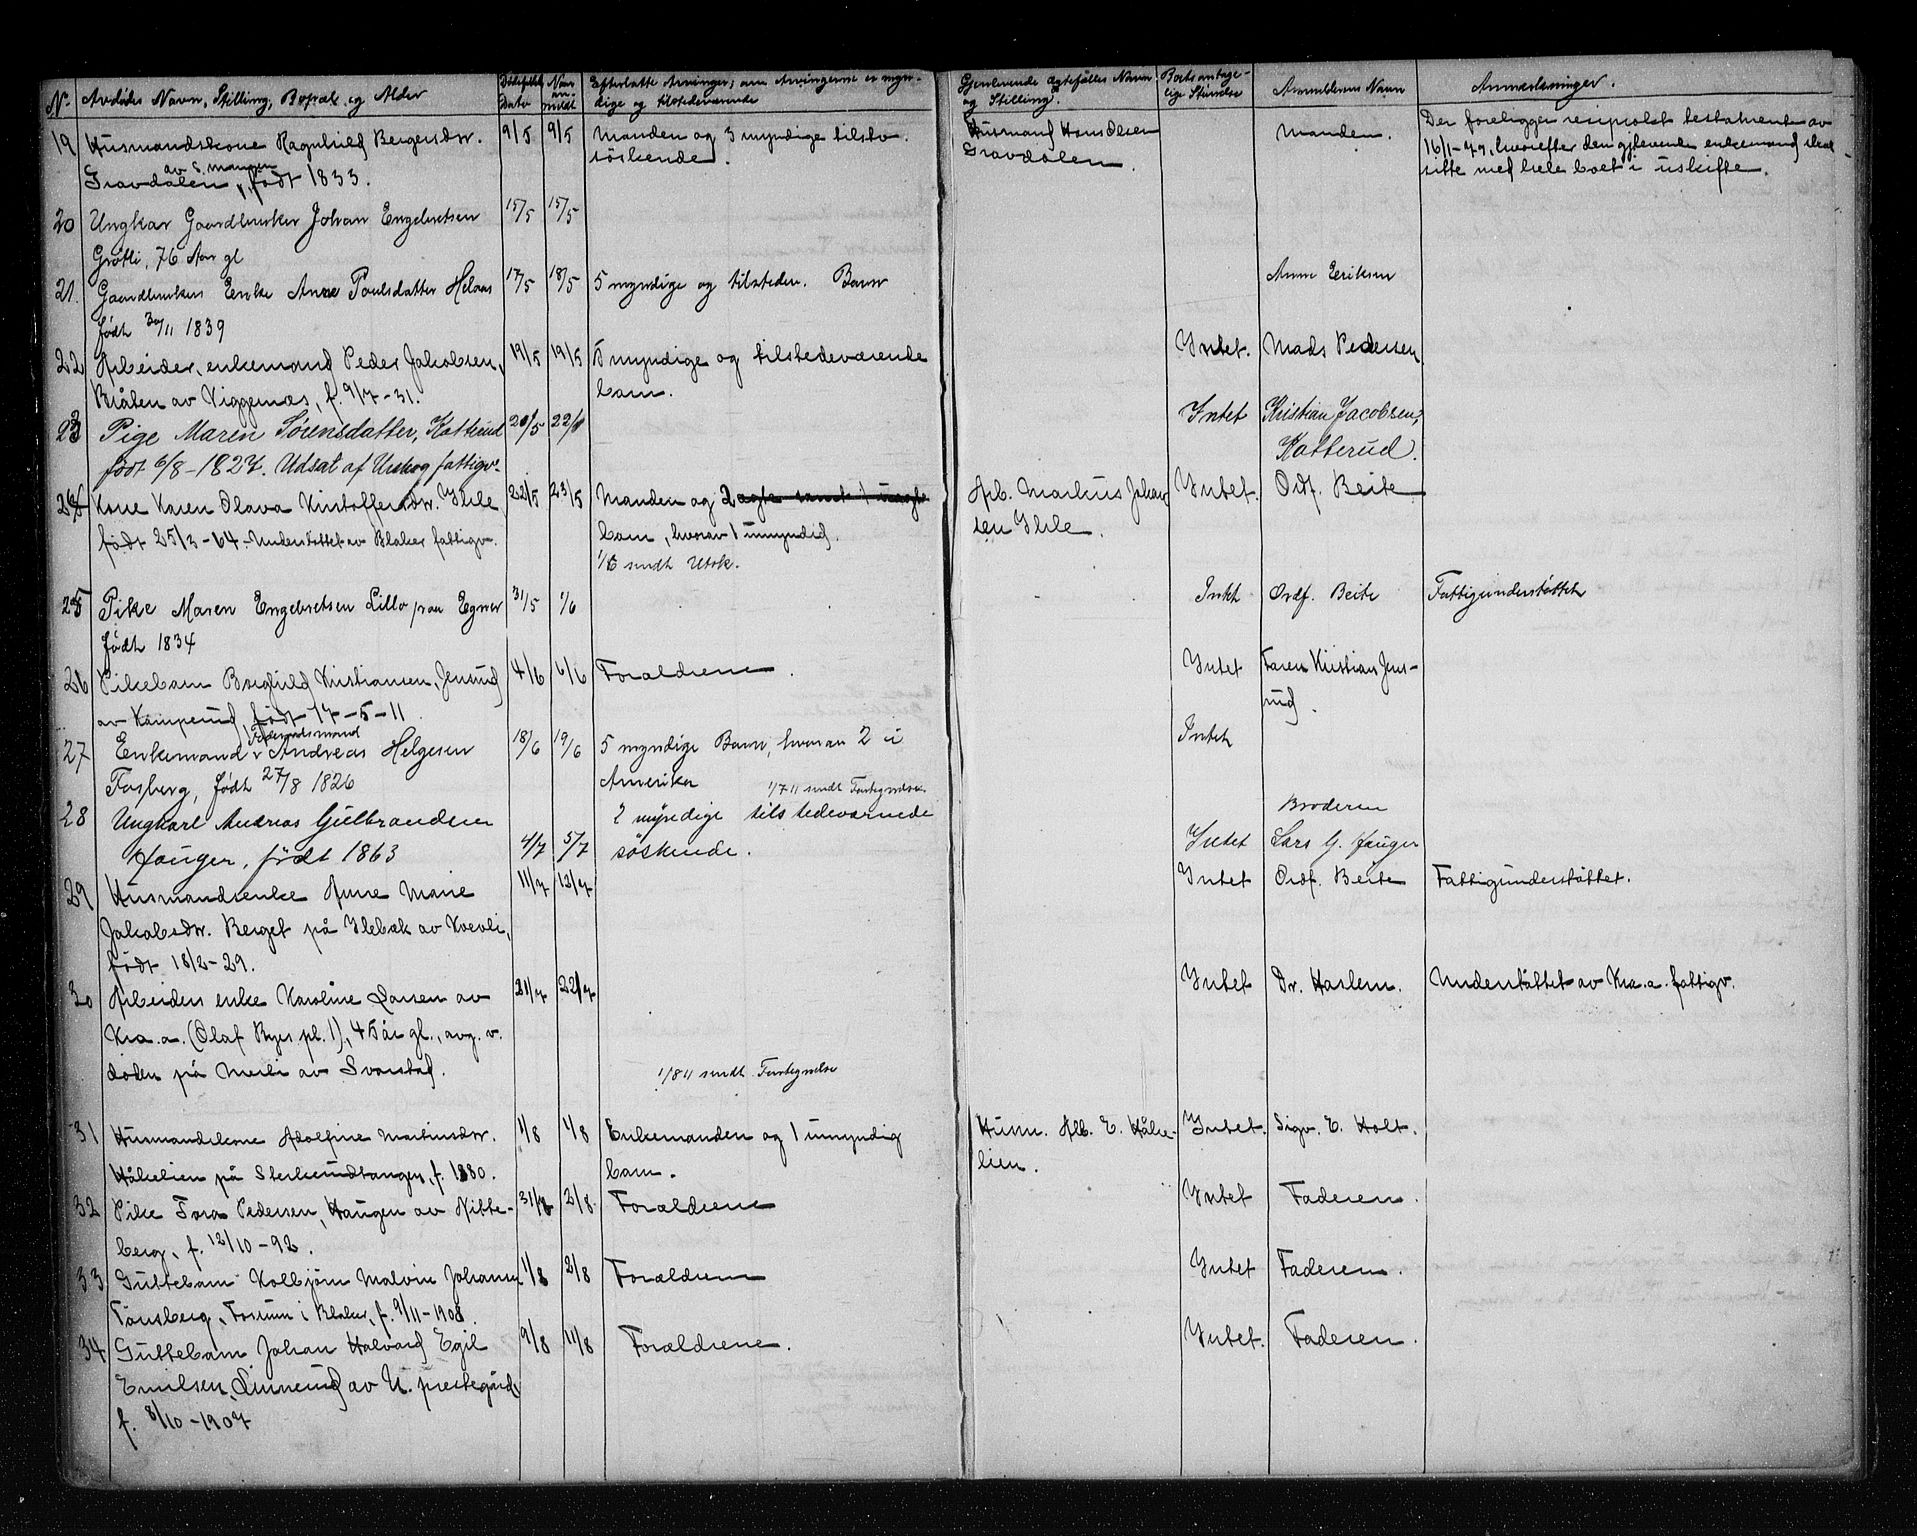 No. Avdødes Navn, Stilling, Bopæl og Alder Dødsfaldets Dato Naar anmeldt Efterlatte Arvinger; om Arvingerne er myn-
dige og tilstedeværende Gjenlevende Ægtefælles Navn og Stilling Boets antage-
lige Størrelse Anmelderens Navn Anmerkninger.
19 Husmandskone Ragnhild Bergersdtr. 9/5 9/5 Manden og 3 myndige tilstv. Husmand Hans Olsen Manden. Der foreligger resiprokt testamente av
Gravdalen av S. Mangen, født 1833. søskende. Gravdalen. 16/1-79, hvorefter den gjlevende enkemand skal
sitte med hele boet i uskifte.
20 Ungkar Gaardbruker Johan Engebretsen 15/5 15/5
Grøtli, 76 Aar gl
21. Gaardbrukers Enke Anne Poulsdatter Helaas 17/5 18/5 5 myndige og tilsteden. Barn Anne Eriksen
født 30/11 1839
22 Arbeider, enkemand Peder Jakobsen, 19/5 19/5 5 myndige og tilstedeværende Intet. Mads Pedersen
Bråten av Viggenæs, f. 9/7-31. barn.
23 Pige Maren Sørensdatter, Katterud 20/5 22/5 Intet Kristian Jacobsen,
født 6/8-1827. Udsat af Urskog fattigv. Katterud.
24 Kone Karen Olava Kristoffersdtr. Ihle 22/5 23/5 Manden og 2 Arb. Markus Johan Intet. Ordf. Beite
født 25/3-64. Understøttet av Blaker fattigv. barn, hvorav 1 umyndig. sen Ihle.
1/6 sendt Utsk.
25 Pike Maren Engebretsen Lillo paa Egner 31/5 1/6 Intet Ordf. Beite Fattigunderstøttet
født 1834
26 Pikebarn Borghild Kristiansen, Jensrud 4/6 6/6 Forældrene. Intet Faren Kristian Jens-
av Kamperud, født 17-5-11. rud.
27 Enkemand Føderaadsmand Andreas Helgesen 18/6 19/6 5 myndige Barn, hvoraf 2 i Intet
Fosberg, født 27/8 1826 Amerika 1/7 11 sendt Fortegnelse
28 Ungkarl Andreas Gulbrandsen 2 myndige tilstedeværnede Broderen
Hauger, født 1863 4/7 5/7 søskende. Intet Lars G. Hauger
29 Husmandsenke Anne Marie 11/7 12/7 Intet Ordf. Beite Fattigunderstøttet.
Jakobsdtr. Berget på Ilebæk av Kvevli,
født 18/2-29.
30 Arbeiders enke Karoline Larsen av 21/7 22/7 Intet Dr. Haslem. Understøttet av Kra.a. fattigv.
Kra.a. (Olaf Ryes pl. 1), 45 år gl., avg. v.
døden på Merli av Svarstad.
1/8 11 sendt Fortegnelse
31 Husmandskone Adolfine Martinsdtr. 1/8 1/8 Enkemanden og 1 umyndig Husm. Alb. E. Håke- Intet. Sigv. E. Holt.
Håkelien på Sterkerudtangen, f. 1880. barn. lien.
32 Pike Tora Pedersen, Haugen av Nitte- 31/7 2/8. Forældrene Intet Faderen.
berg, f. 12/10-92.
33 Guttebarn Kolbjørn Malvin Johansen 1/8 2/8 Forældrene Intet Faderen.
Tønsberg, Fossum i Blaker, f. 9/11-1908.
34 Guttebarn Johan Halvard Egil 9/8 11/8 Forældrene. Intet. Faderen.
Emilsen, Linnerud av U. prestegård
f. 8/10-1907